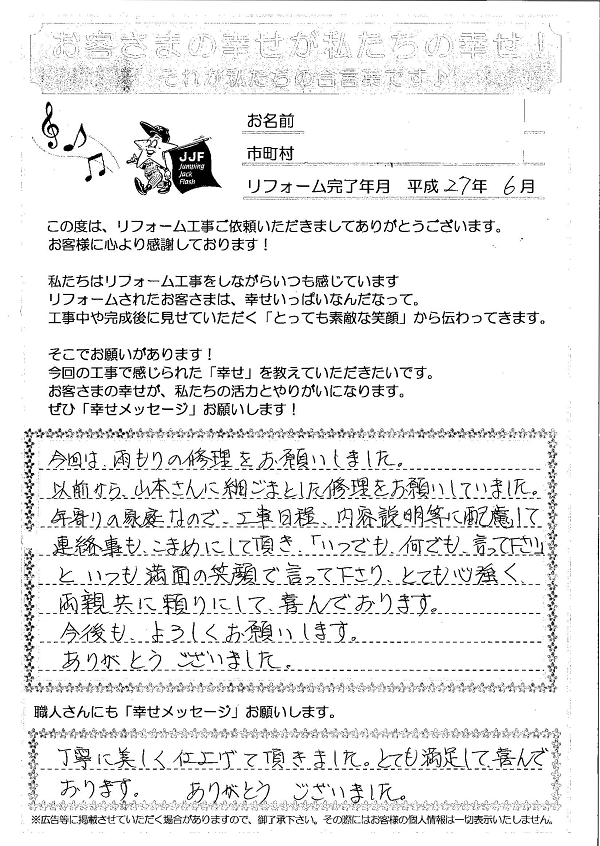 お客さまの幸せが私たちの幸せ！
それが私たちの合言葉です♪
お名前
市町村
リフォーム完了年月　平成 27年　6月
JJF
Jumping
Jack
Flash
この度は、リフォーム工事ご依頼いただきましてありがとうございます。
お客様に心より感謝しております！
私たちはリフォーム工事をしながらいつも感じています
リフォームされたお客さまは、幸せいっぱいなんだなって。
工事中や完成後に見せていただく「とっても素敵な笑顔」から伝わってきます。
そこでお願いがあります！
今回の工事で感じられた「幸せ」を教えていただきたいです。
お客さまの幸せが、私たちの活力とやりがいになります。
ぜひ「幸せメッセージ」お願いします！
今回は、雨もりの修理をお願いしました。
以前から、山本さんに細ごまとした修理をお願いしていました。
年寄りの家庭なので、工事日程、内容説明等に配慮して
連絡事も、こまめにして頂き、「いつでも、何でも、言って下さい」
と いつも満面の笑顔で言って下さり、とても心強く、
両親共に頼りにして、喜んでおります。
今後も、よろしくお願いします。
ありがとう ございました。
職人さんにも「幸せメッセージ」お願いします。
丁寧に美しく仕上げて頂きました。とても満足して喜んで
おります。　ありがとう ございました。
※広告等に掲載させていただく場合がありますので、御了承下さい。その際にはお客様の個人情報は一切表示いたしません。